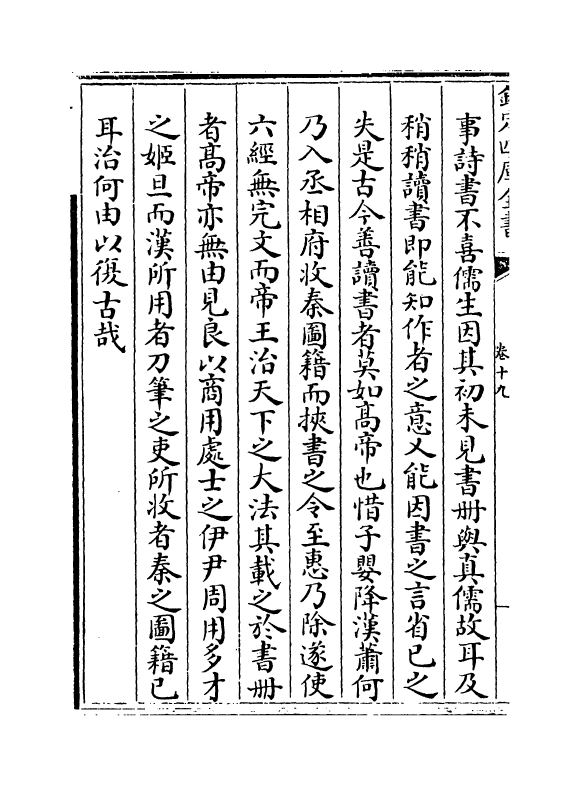 欽定四庫全書
卷十九
事詩書不喜儒生因其初未見書册與真儒故耳及
稍稍讀書即能知作者之意乂能因書之言省已之
失是古今善讀書者莫如髙帝也惜子嬰降漢蕭何
乃入丞相府收秦圖籍而挾書之令至惠乃除遂使
六經無完文而帝王治天下之大法其載之於書册
者髙帝亦無由見良以商用處士之伊尹周用多才
之姬旦而漢所用者刀筆之吏所收者秦之圖籍已
耳治何由以復古哉